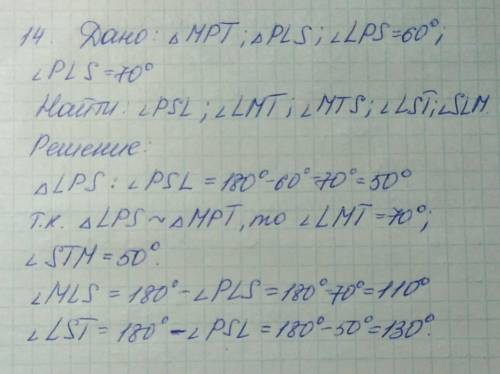 14. Дано: △MPT; △PLS; ∠LPS=60°;
∠PLS=70°
Найти: ∠PSL; ∠LMT; ∠MTS; ∠LST; ∠SLM.
Решение:
△LPS: ∠PSL = 180°-60°-70°=50°
т.к. △LPS ~ △MPT, то ∠LMT=70°;
∠STM=50°.
∠MLS = 180°-∠PLS=180°-70°=110°
∠LST = 180°-∠PSL=180°-50°=130°.